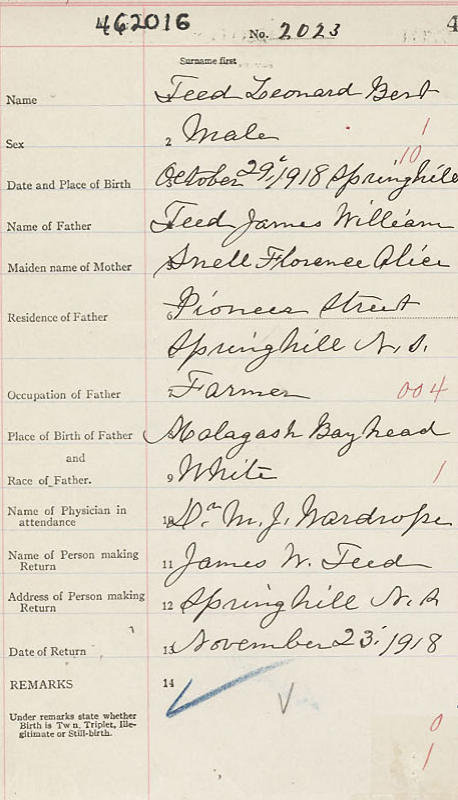 462016
No. 2023
4
Surname first
Name Teed Leonard Bert
Sex 2 Male 1
10
Date and Place of Birth October 29, 1918 Springhill
Name of Father Teed James William
Maiden name of Mother Snell Florence Alice
Residence of Father 6 Pioneer Street
Springhill N.S.
Occupation of Father Farmer 004
Place of Birth of Father Malagash Bayhead
and
Race of Father. 9 White 1
Name of Physician in
attendance 10 Dr. M. J. Wardrope
Name of Person making
Return 11 James W. Teed
Address of Person making
Return 12 Springhill N.S.
Date of Return 13 November 23, 1918
REMARKS 14
Under remarks state whether
Birth is Twin, Triplet, Ille-
gitimate or Still-birth.
0
1